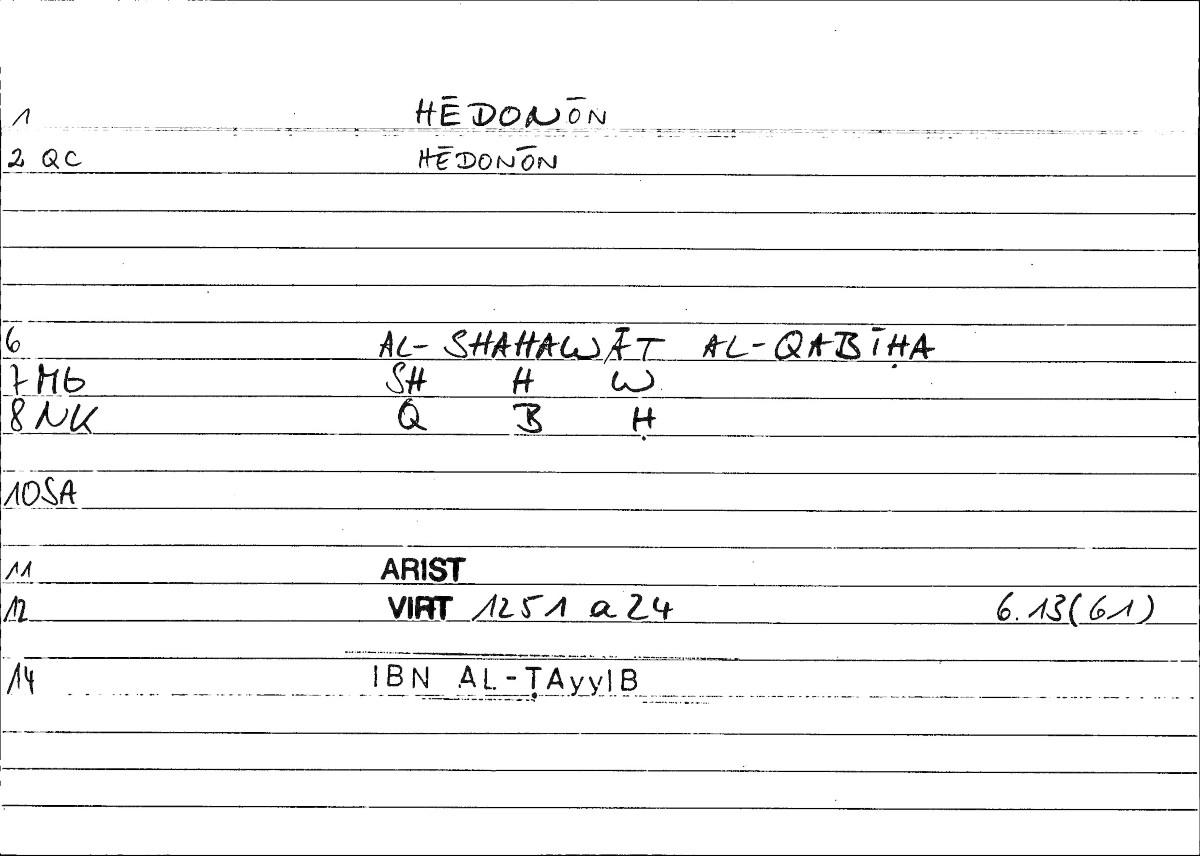 1 HĒDONŌN
2 QC HĒDONŌN
6 AL-SHAHAWĀT AL-QABĪḤA
7 Mb SH H W
8 NK Q B Ḥ
10 SA
11 ARIST
12 VIRT 1251 a 24 6.13(61)
14 IBN AL-ṬAyyIB